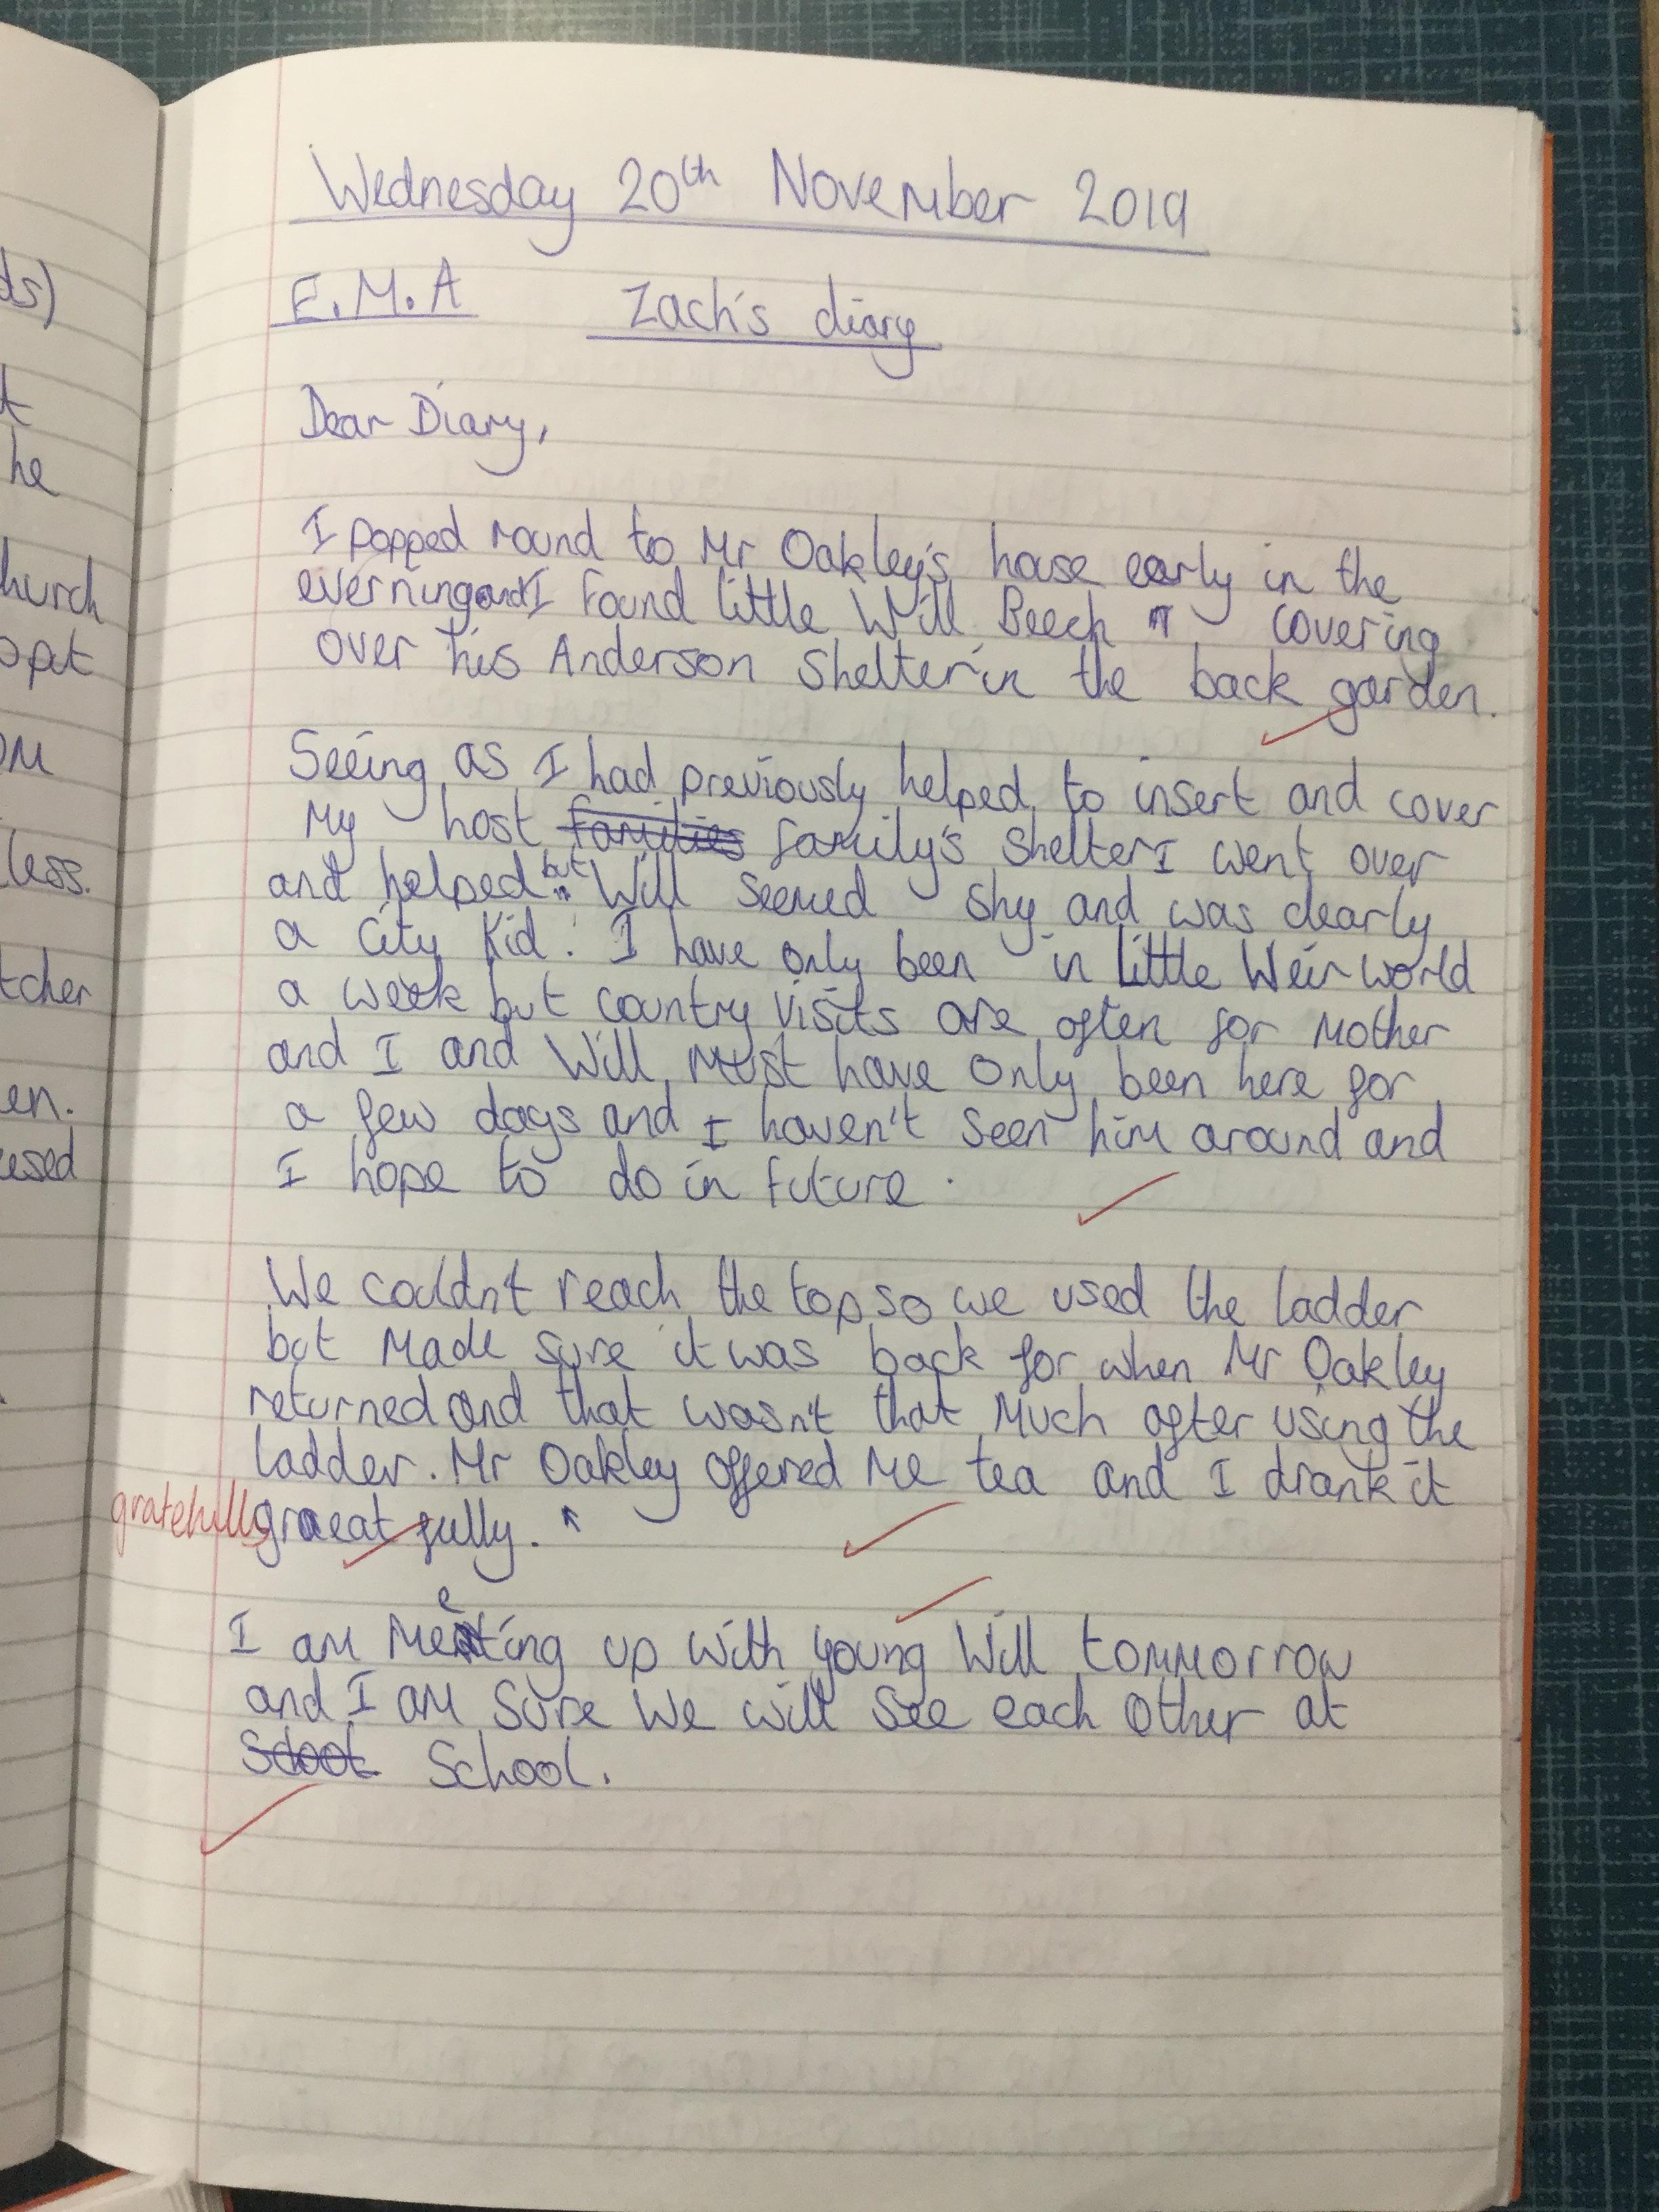 Wednesday 20th November 2019
E.M.A Zach's diary
Dear Diary,
I popped round to Mr Oakley's house early in the
everning and I found little Will Beech covering
over his Anderson Shelter in the back garden.
Seeing as I had previously helped to insert and cover
My host families family's Shelter I went over
and helped but Will Seemed shy and was clearly
a City Kid. I have only been in Little Weirworld
a week but country visits are often for Mother
and I and Will Must have only been here for
a few days and I haven't seen him around and
I hope to do in future.
We couldn't reach the top so we used the ladder
but Made sure it was back for when Mr Oakley
returned and that wasn't that Much after using the
ladder. Mr Oakley offered Me tea and I drank it
gratefully graeat fully.
I am Meeting up with young Will tommorrow
and I am Sure We will See each Other at
School.
ds)
t
he
hurch
opt
om
less.
tcher
en.
used